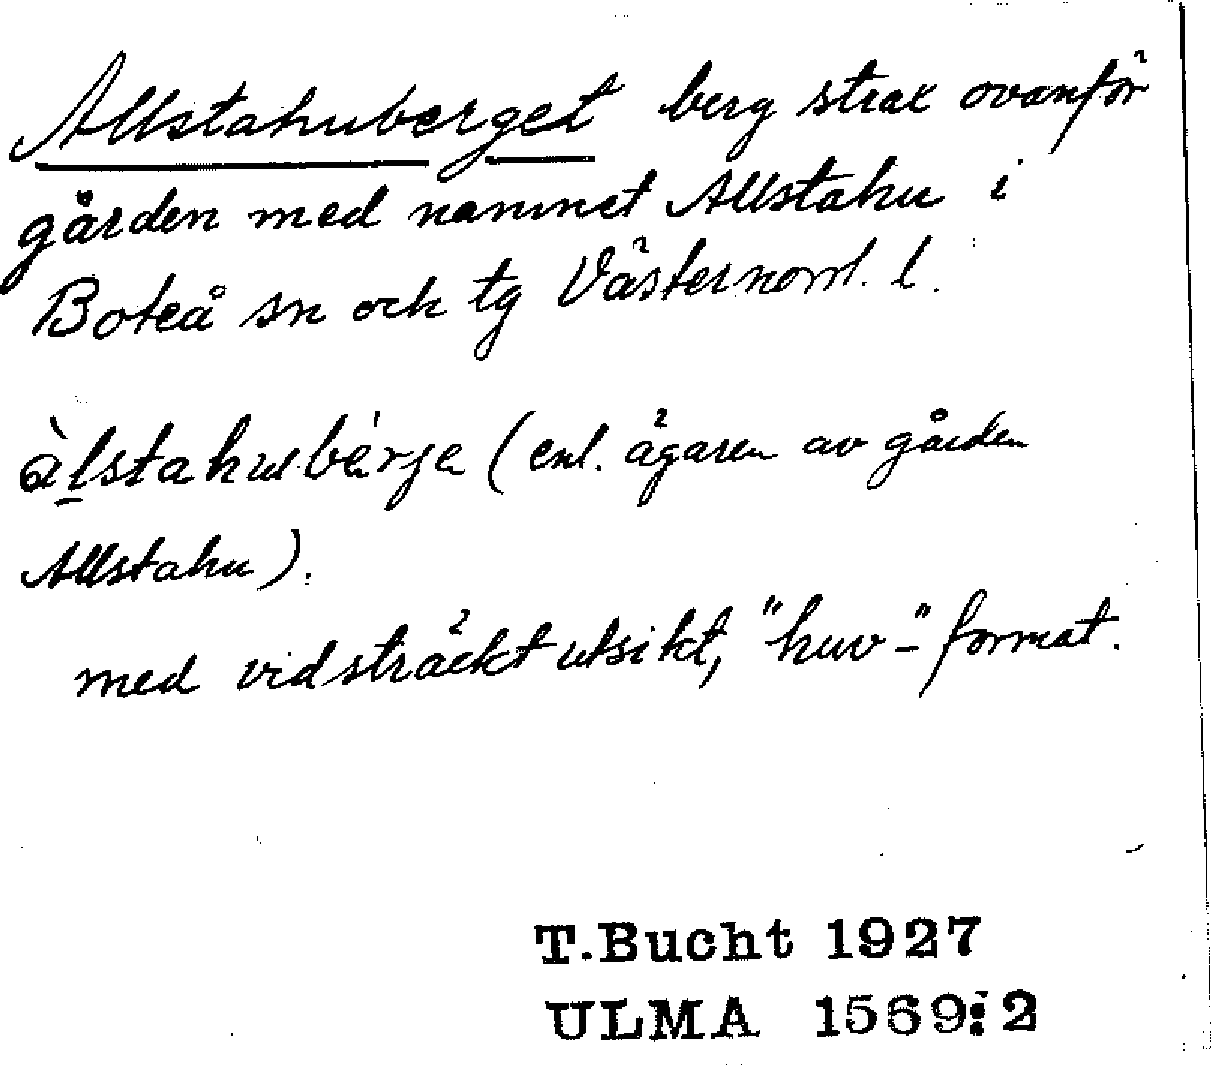 Allstahuberget berg strax ovanför
gården med namnet Allstahu i
Boteå sn och tg Västernorrl. l.
àlstahubérje (enl. ägaren av gården
Allstahu).
med vidsträckt utsikt, "huv-" format.
T.Bucht 1927
ULMA 1569:2